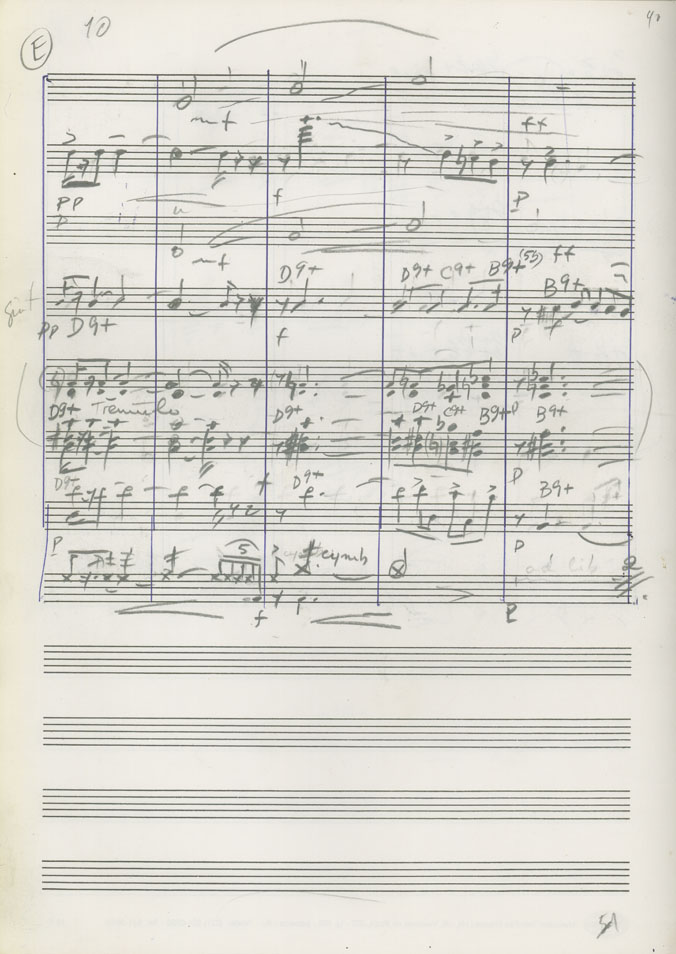 E 10
mf
ff
pp f p
p
mf ff
D9+ D9+ C9+ B9+ (5b) B9+
pp D9+ f p
D9+ Tremulo D9+ D9+ C9+ B9+ p B9+
p
D9+ D9+ B9+
p p
5 cymb ad lib 2
f p
51